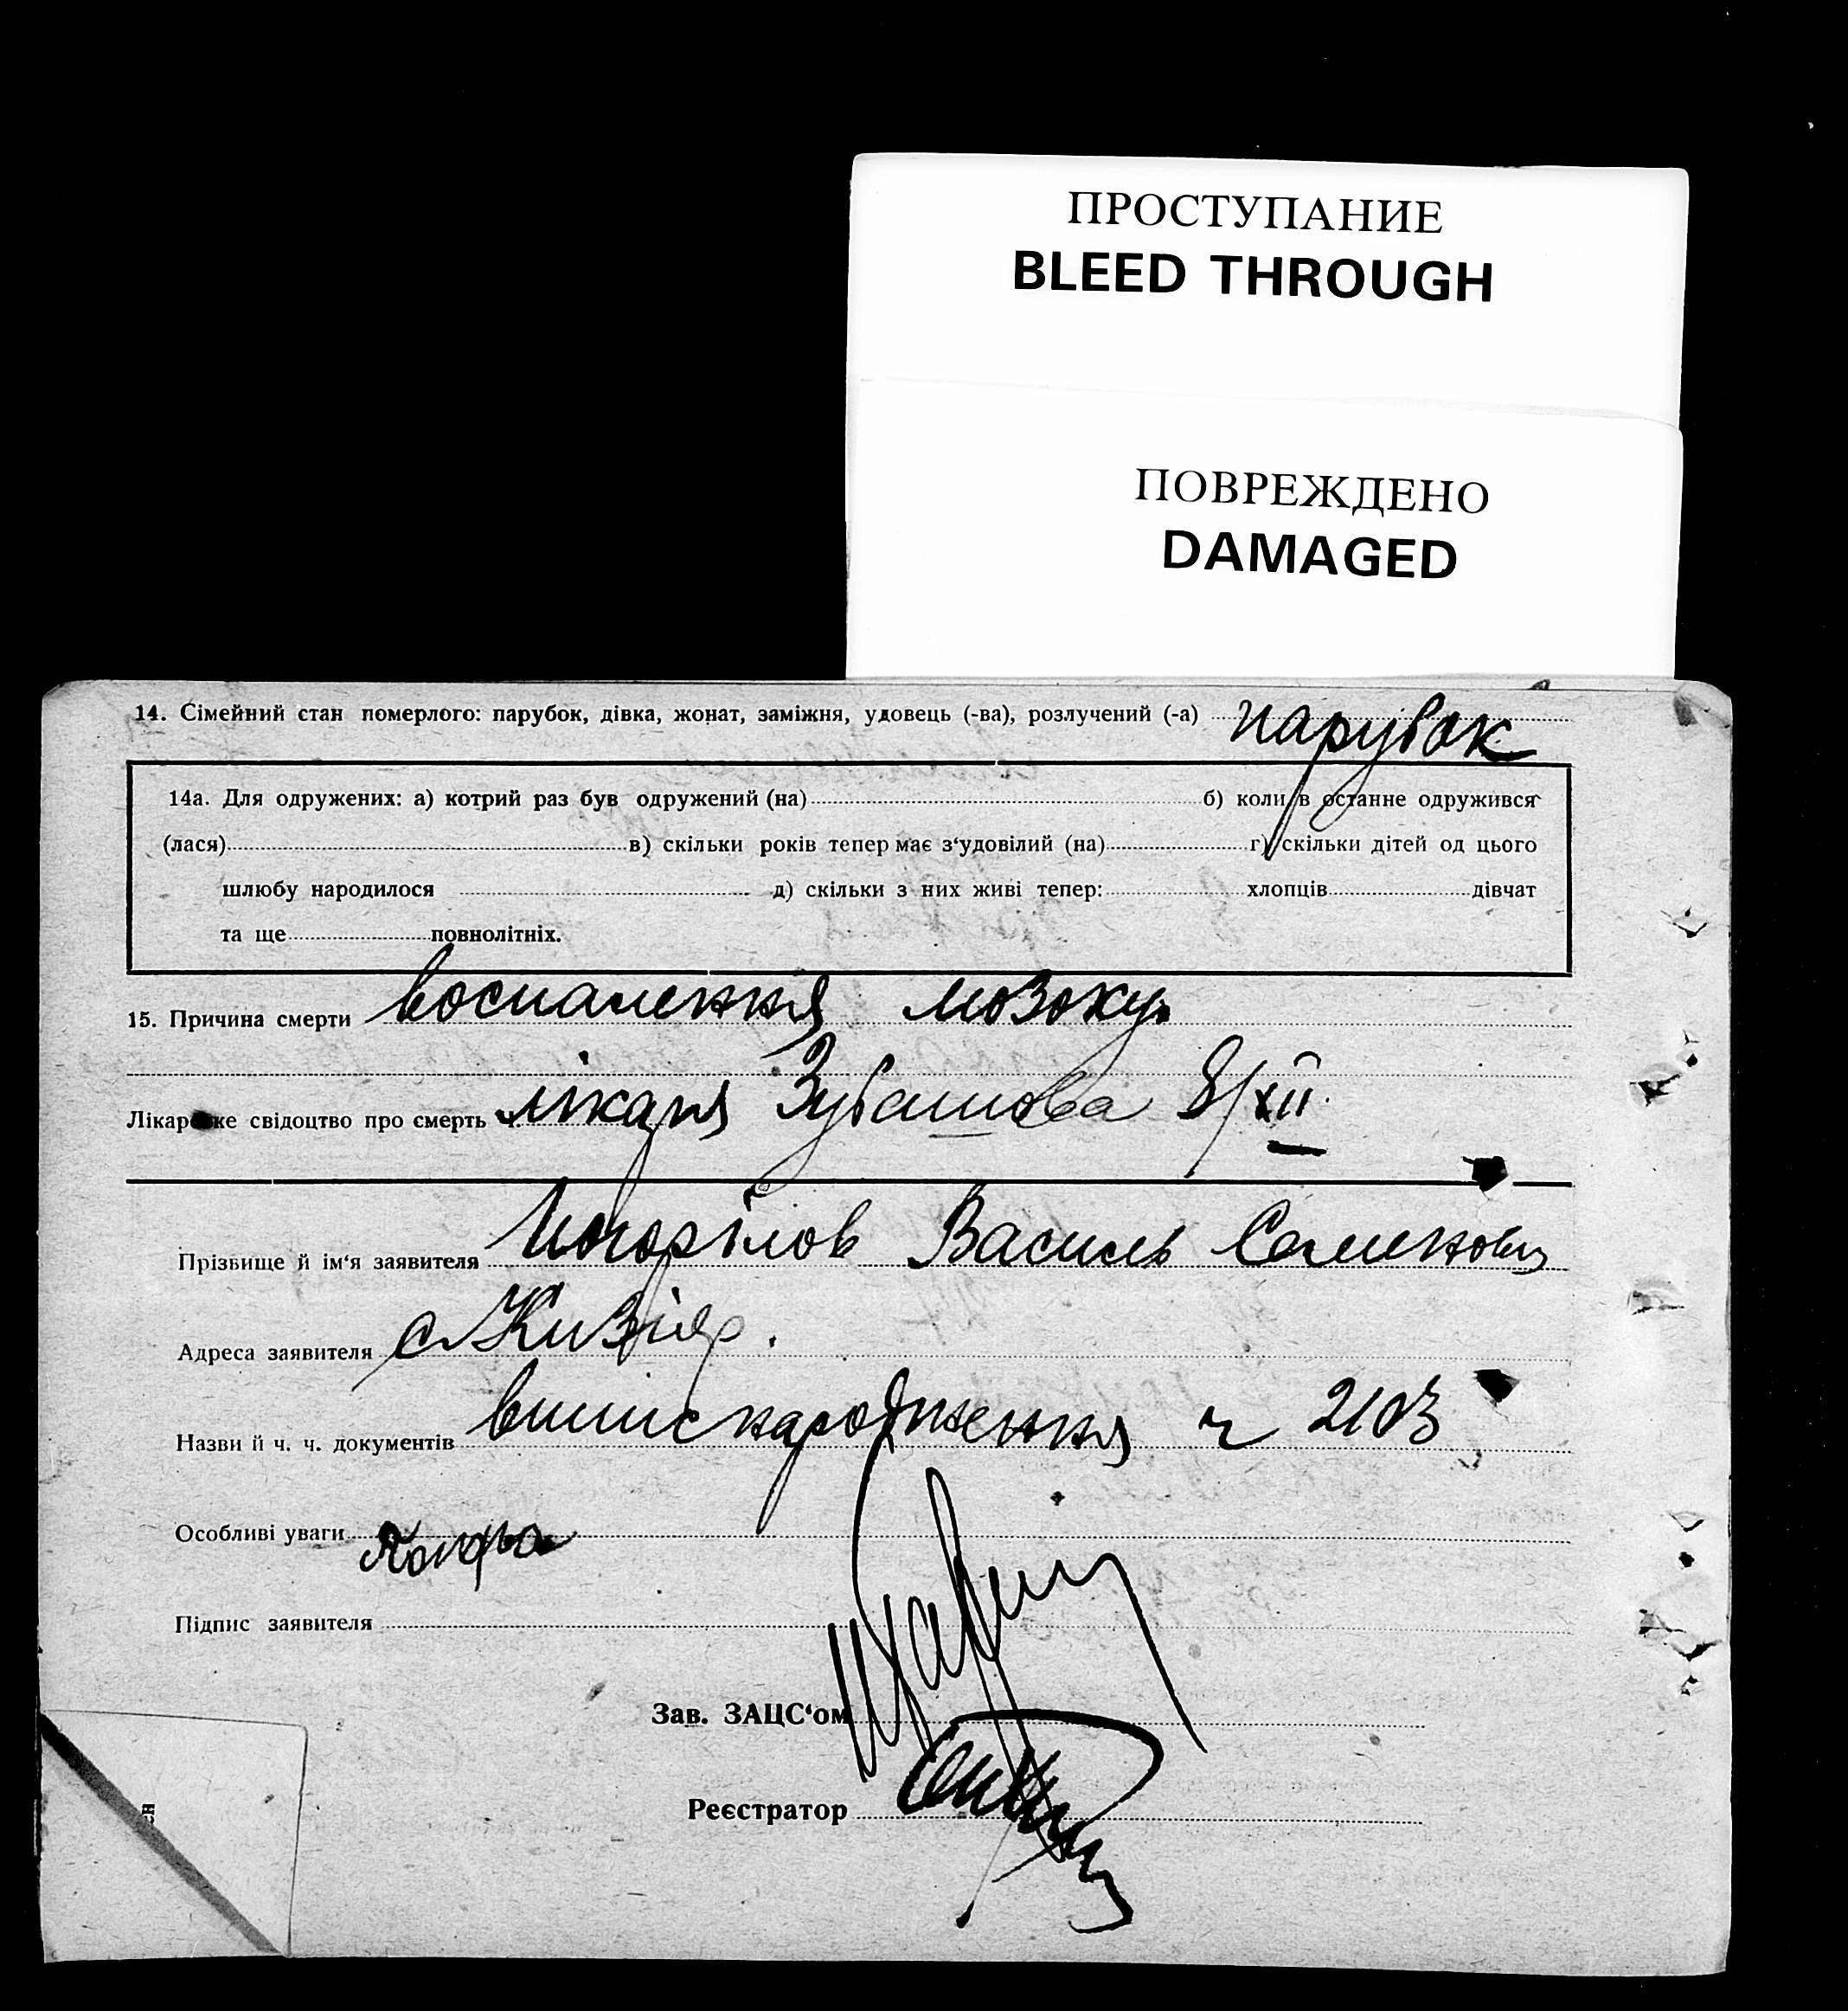 ПРОСТУПАНИЕ
BLEED THROUGH
ПОВРЕЖДЕНО
DAMAGED
14. Сімейний стан померлого: парубок, дівка, жонат, заміжня, удовець (-ва), розлучений (-а) парубок
14а. Для одружених: а) котрий раз був одружений (на) б) коли в останнє одружився
(лася) в) скільки років тепер має з‘удовілий (на) г) скільки дітей од цього
шлюбу народилося д) скільки з них живі тепер: хлопців дівчат
та ще повнолітніх.
15. Причина смерти воспалення мозоку.
Лікарське свідоцтво про смерть лікаря Зубашова 8/XII
Прізвище й ім‘я заявителя Погорілов Василь Семенович
Адреса заявителя с Кизіяр.
Назви й ч. ч. документів випис народження ч 2103
Особливі уваги
Підпис заявителя
Зав. ЗАЦС‘ом
Реєстратор